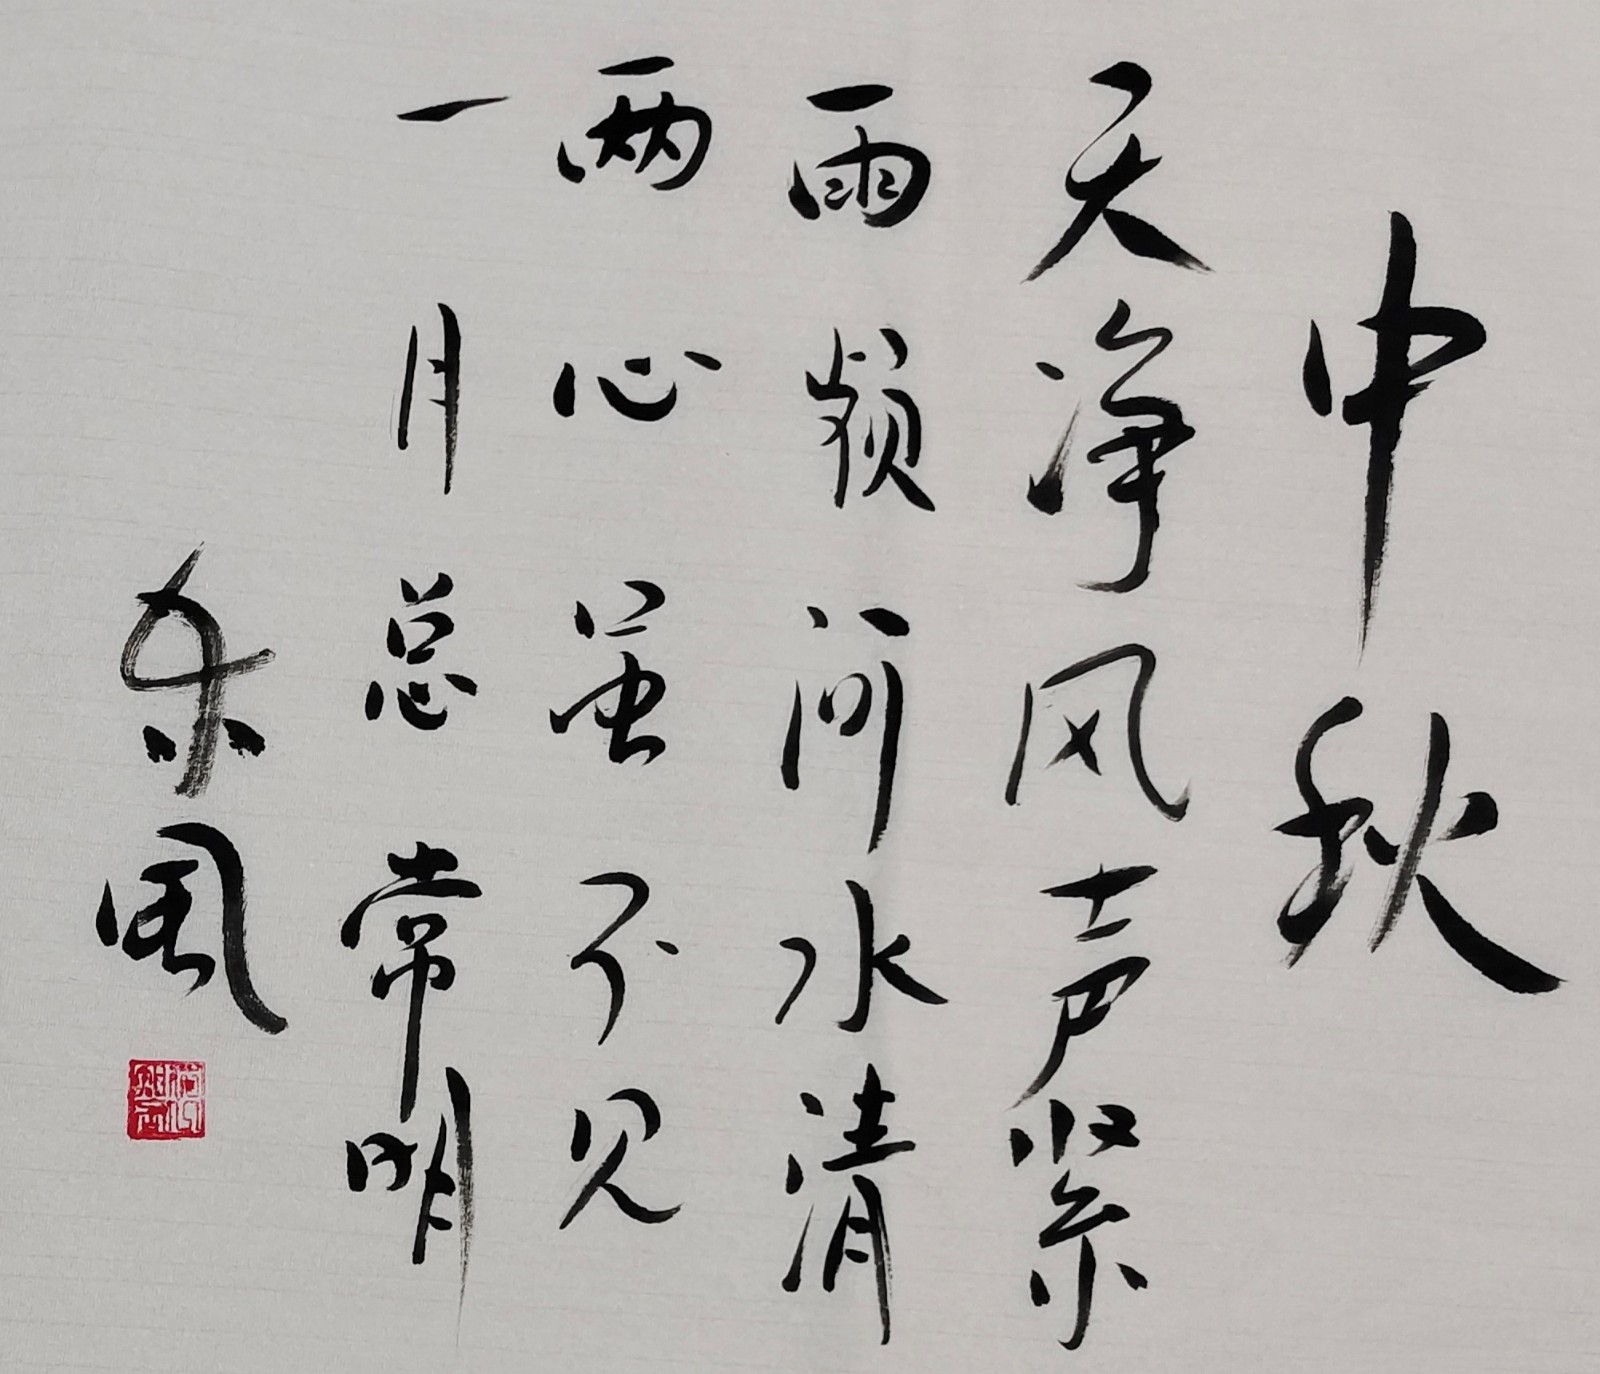 中秋
天净风声紧
雨频河水清
两心虽不见
一月总常明